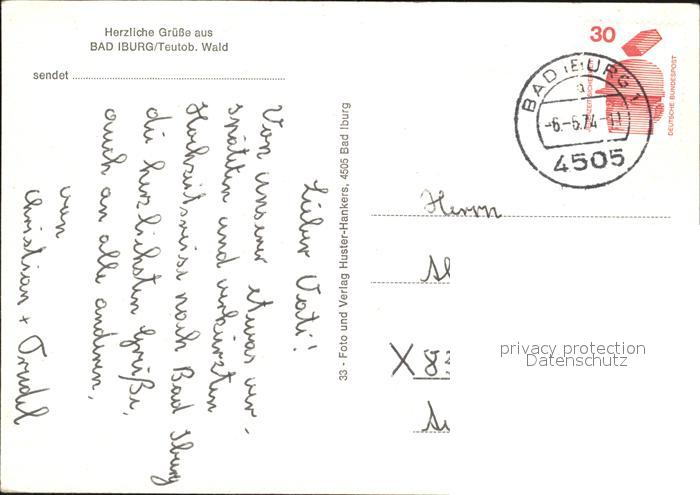 Herzliche Grüße aus
BAD IBURG/Teutob. Wald
sendet
Lieber Vati!
Von unserer etwas ver-
späteten und verkürzten
Hochzeitsreise nach Bad Iburg
die herzlichsten Grüße,
auch an alle anderen,
von
Christian + Trudel
33 - Foto und Verlag Huster-Hankers, 4505 Bad Iburg
30
DEUTSCHE BUNDESPOST
BAD IBURG 1
a
-6.-6.74-11
4505
Herrn
X
privacy protection
Datenschutz